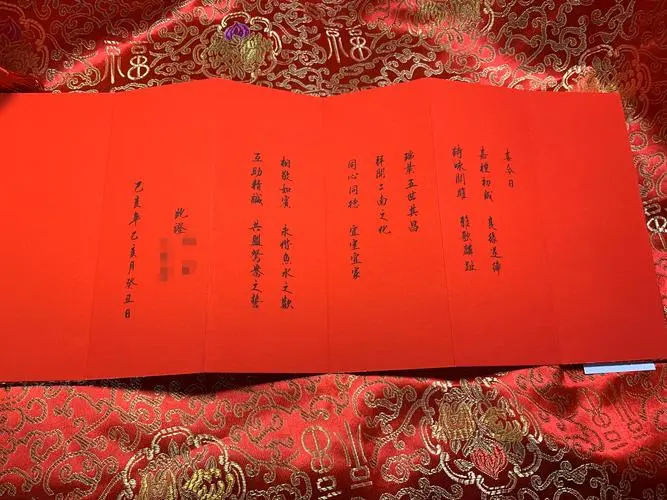 喜今日
嘉禮初成 良緣遂締
詩咏關雎 雅歌麟趾
瑞葉五世其昌
祥開二南之化
同心同德 宜室宜家
相敬如賓 永偕魚水之歡
互助精誠 共盟鴛鴦之誓
此證
己亥年乙亥月癸丑日